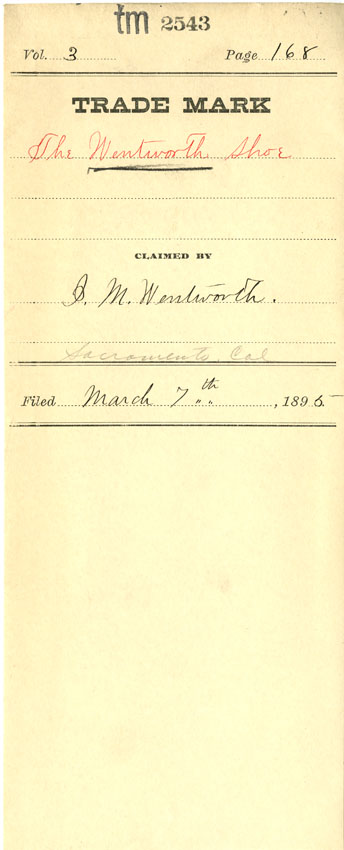 tm 2543
Vol. 3 Page 168
TRADE MARK
The Wentworth Shoe
CLAIMED BY
M. Wentworth.
Sacramento, Cal
Filed March 7th , 189